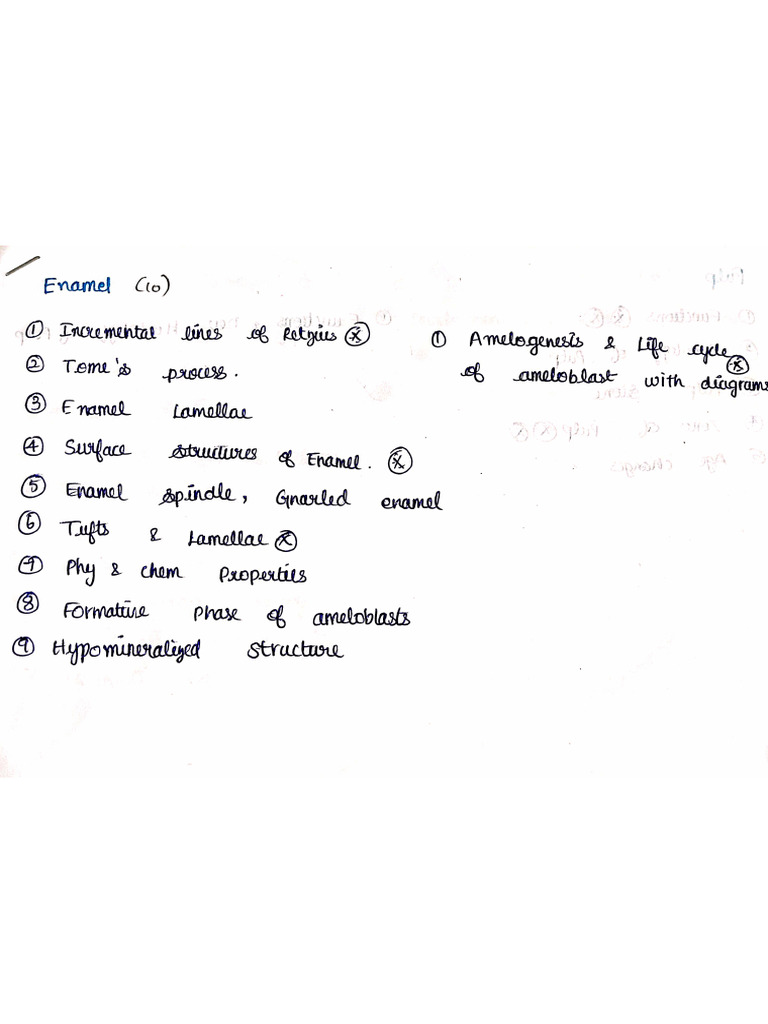 Enamel (10)
① Incremental lines of Retzius ⊗
② Tome's process.
③ Enamel Lamellae
④ Surface structures of Enamel. ⊗
⑤ Enamel spindle, Gnarled enamel
⑥ Tufts & Lamellae ⊗
⑦ Phy & chem Properties
⑧ Formative Phase of ameloblasts
⑨ Hypomineralized structure
① Amelogenesis & Life cycle
of ameloblast with diagrams ⊗